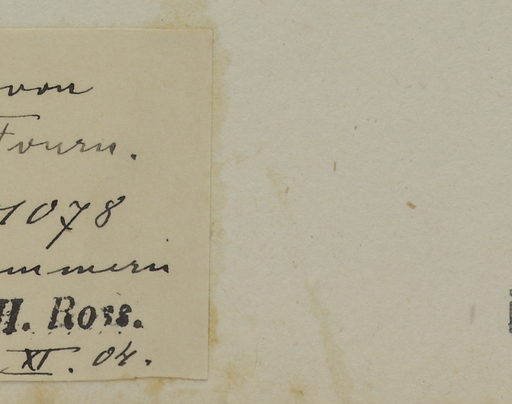 von
Fourn.
1078
mmern
H. Ross.
XI. 04.